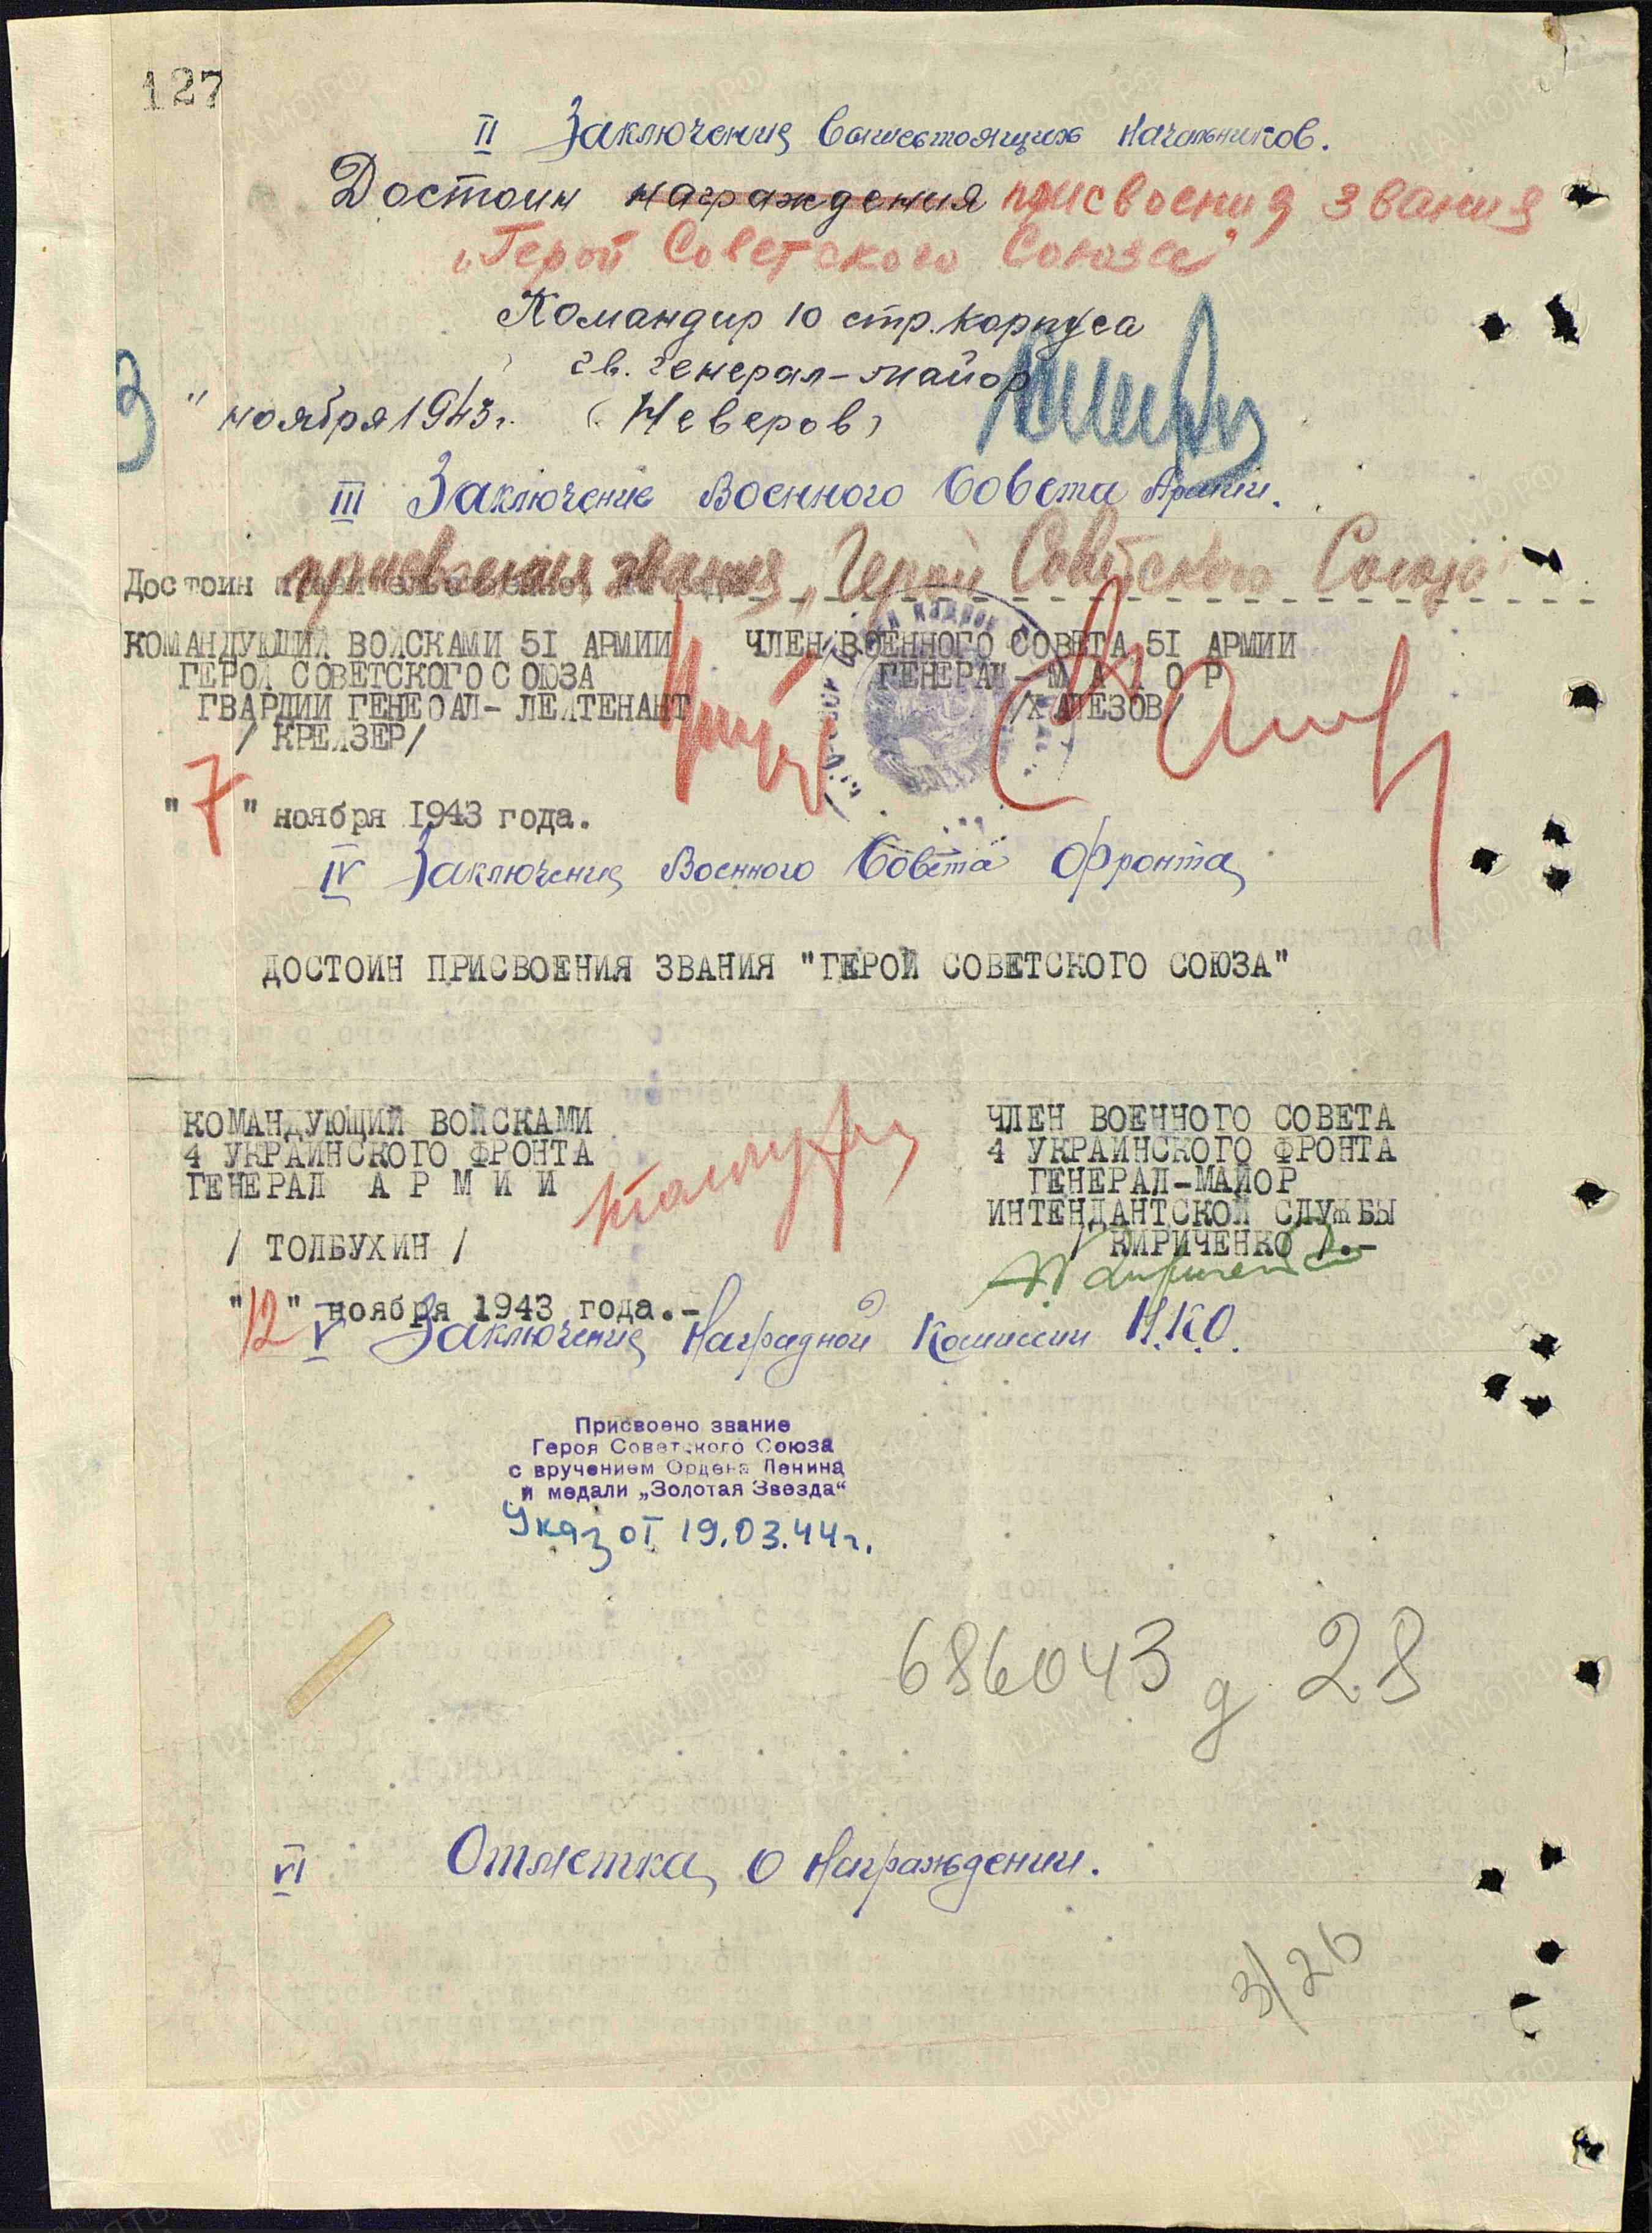 127
II Заключение вышестоящих начальников.
Достоин награждения присвоения звания
„Герой Советского Союза"
Командир 10 стр. корпуса
гв. генерал-майор
3 " ноября 1943 г. (Неверов)
III Заключение Военного Совета Армии.
Достоин присвоения звания „Герой Советского Союза"
КОМАНДУЮЩИЙ ВОЙСКАМИ 51 АРМИИ ЧЛЕН ВОЕННОГО СОВЕТА 51 АРМИИ
ГЕРОЙ СОВЕТСКОГО СОЮЗА ГЕНЕРАЛ-МАЙОР
ГВАРДИИ ГЕНЕРАЛ-ЛЕЙТЕНАНТ /ХАЛЕЗОВ/
/ КРЕЙЗЕР/
"7" ноября 1943 года.
IV Заключение Военного Совета Фронта
ДОСТОИН ПРИСВОЕНИЯ ЗВАНИЯ "ГЕРОЙ СОВЕТСКОГО СОЮЗА"
КОМАНДУЮЩИЙ ВОЙСКАМИ ЧЛЕН ВОЕННОГО СОВЕТА
4 УКРАИНСКОГО ФРОНТА 4 УКРАИНСКОГО ФРОНТА
ГЕНЕРАЛ АРМИИ ГЕНЕРАЛ-МАЙОР
ИНТЕНДАНТСКОЙ СЛУЖБЫ
/ ТОЛБУХИН / / КИРИЧЕНКО /.-
"12" ноября 1943 года.-
V Заключение Наградной Комиссии Н.К.О.
Присвоено звание
Героя Советского Союза
с вручением Ордена Ленина
и медали „Золотая Звезда“
Указ от 19.03.44 г.
686043 д 28
VI Отметка о награждении.
3/26